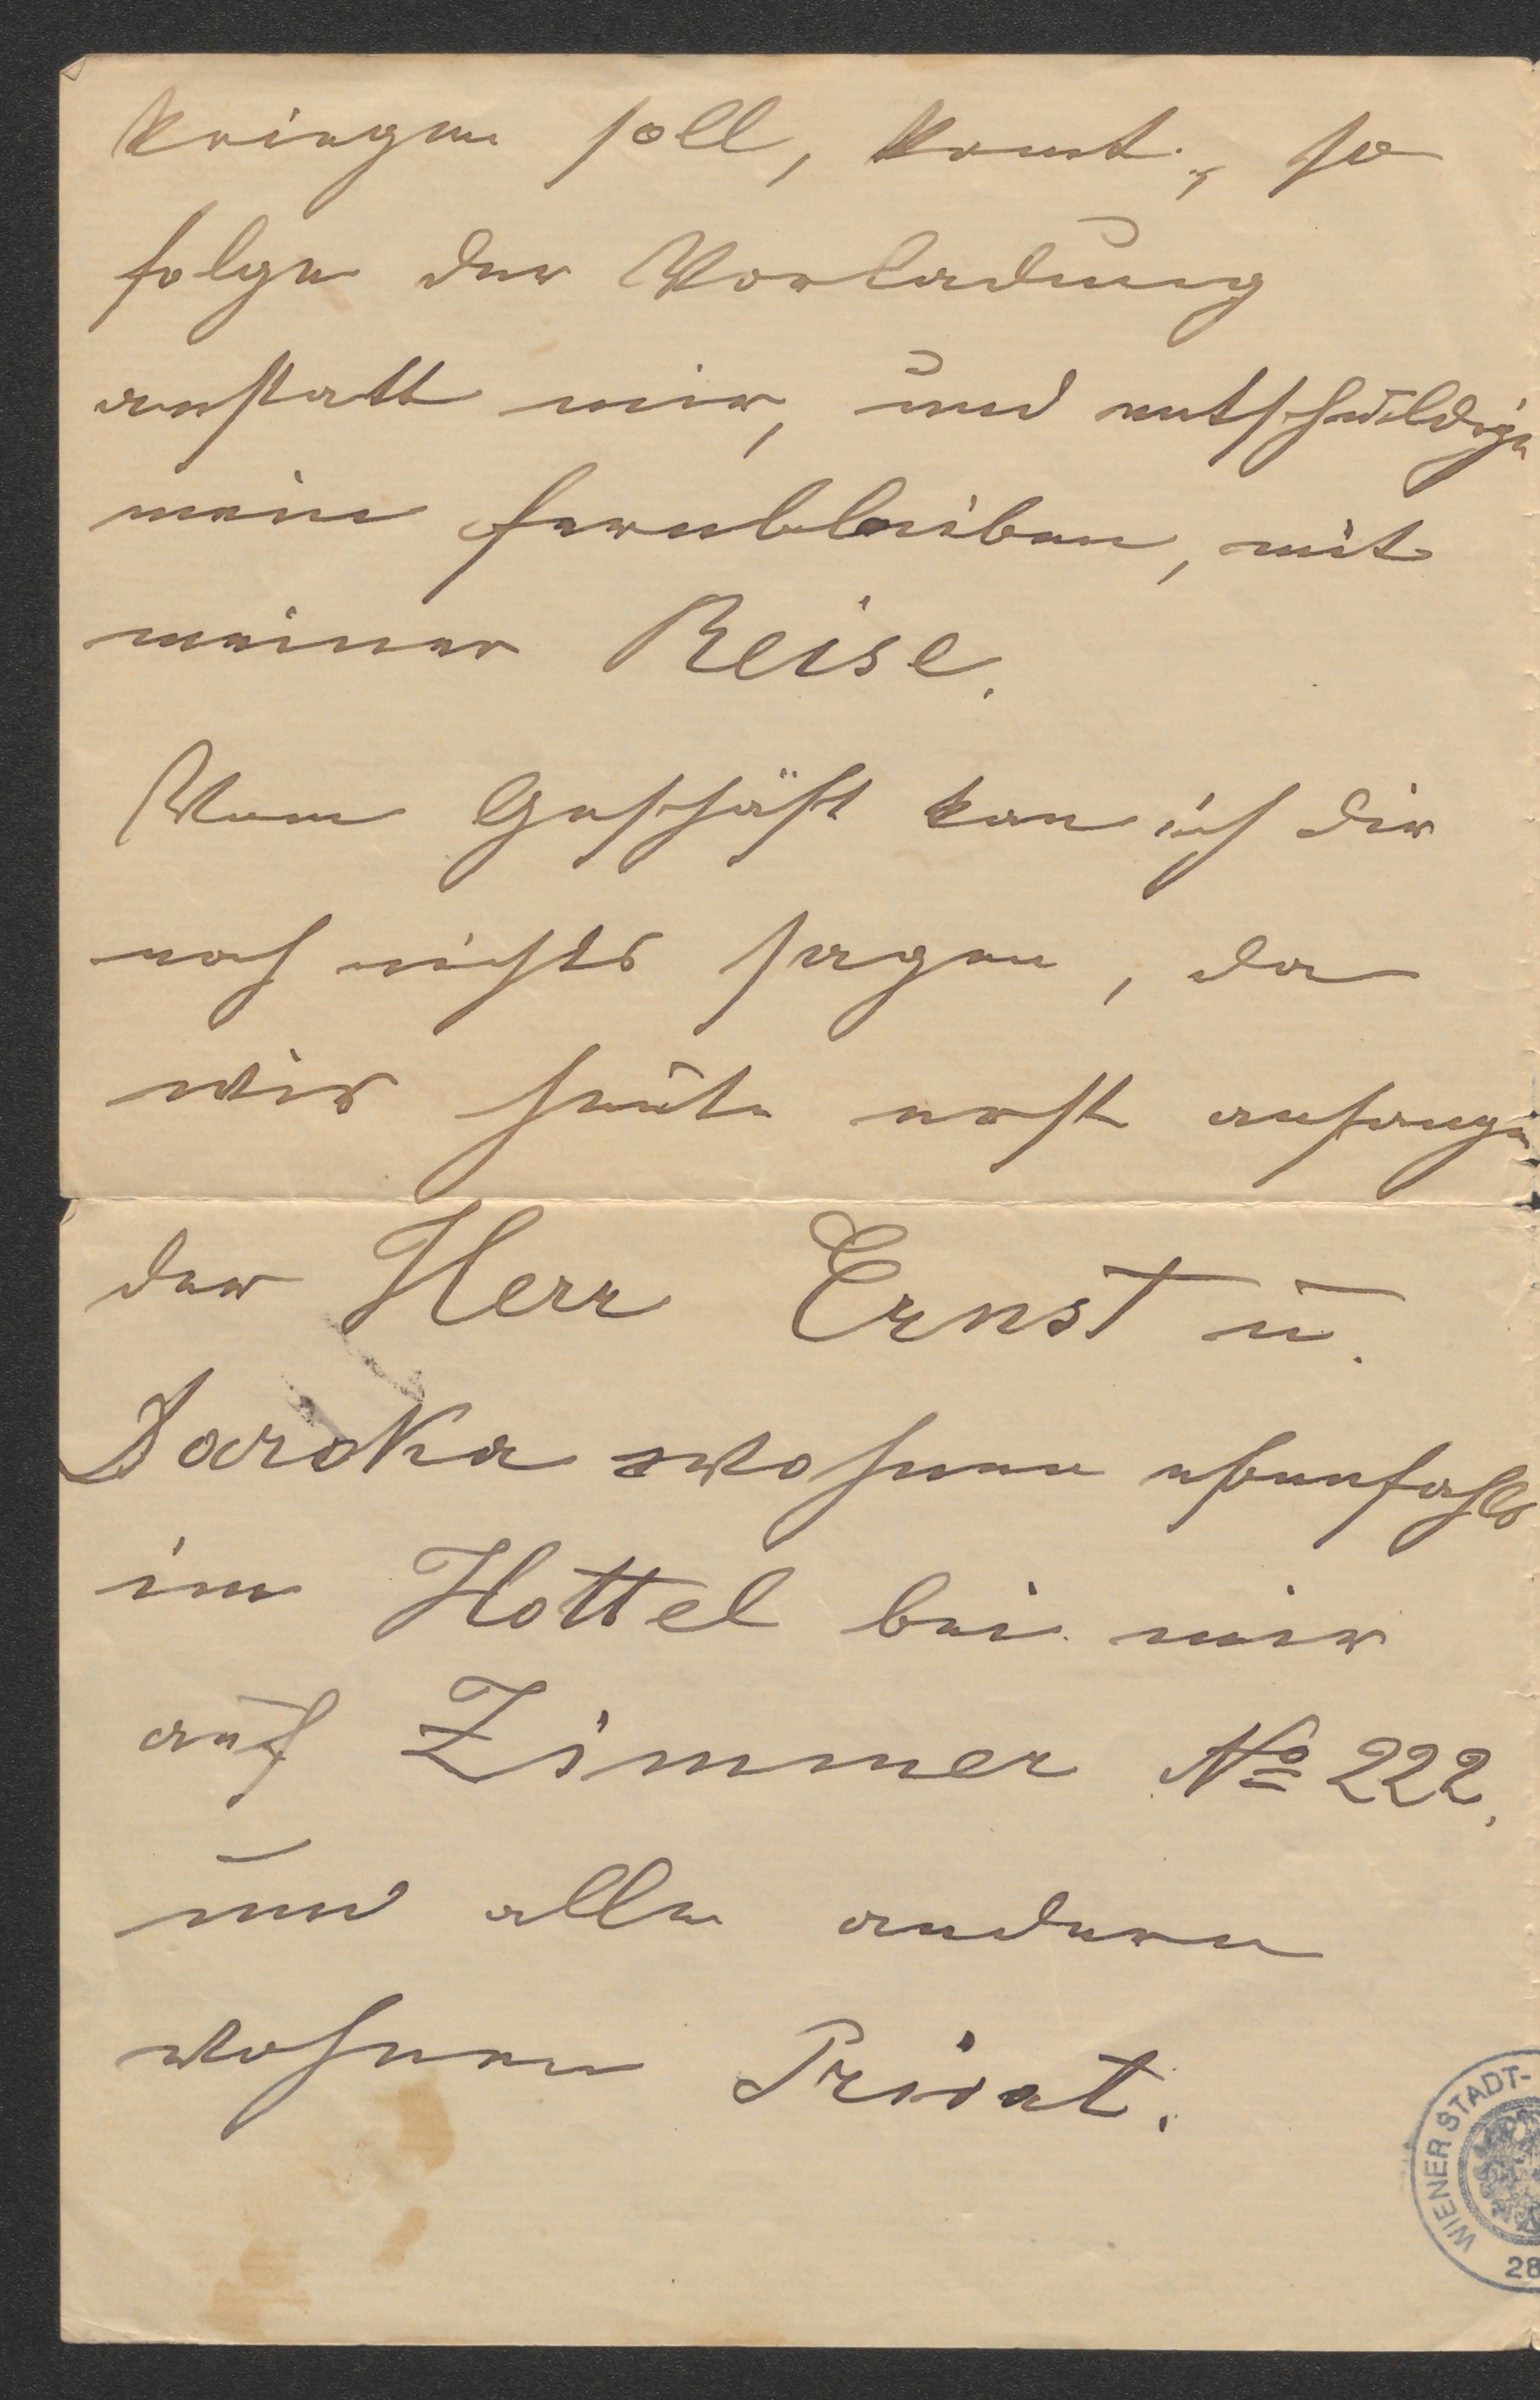 kriegen soll, komt, so
folge der Vorladung
anstatt mir, und entschuldige
mein fernbleiben, mit
meiner Reise.
Vom Geschäft kan ich dir
noch nichts sagen, da
wir heute erst anfangen
der Herr Ernst u.
wohnen ebenfahls
im Hottel bei mir
auf Zimmer № 222,
und alle andern
wohnen Privat.
WIENER STADT-
28